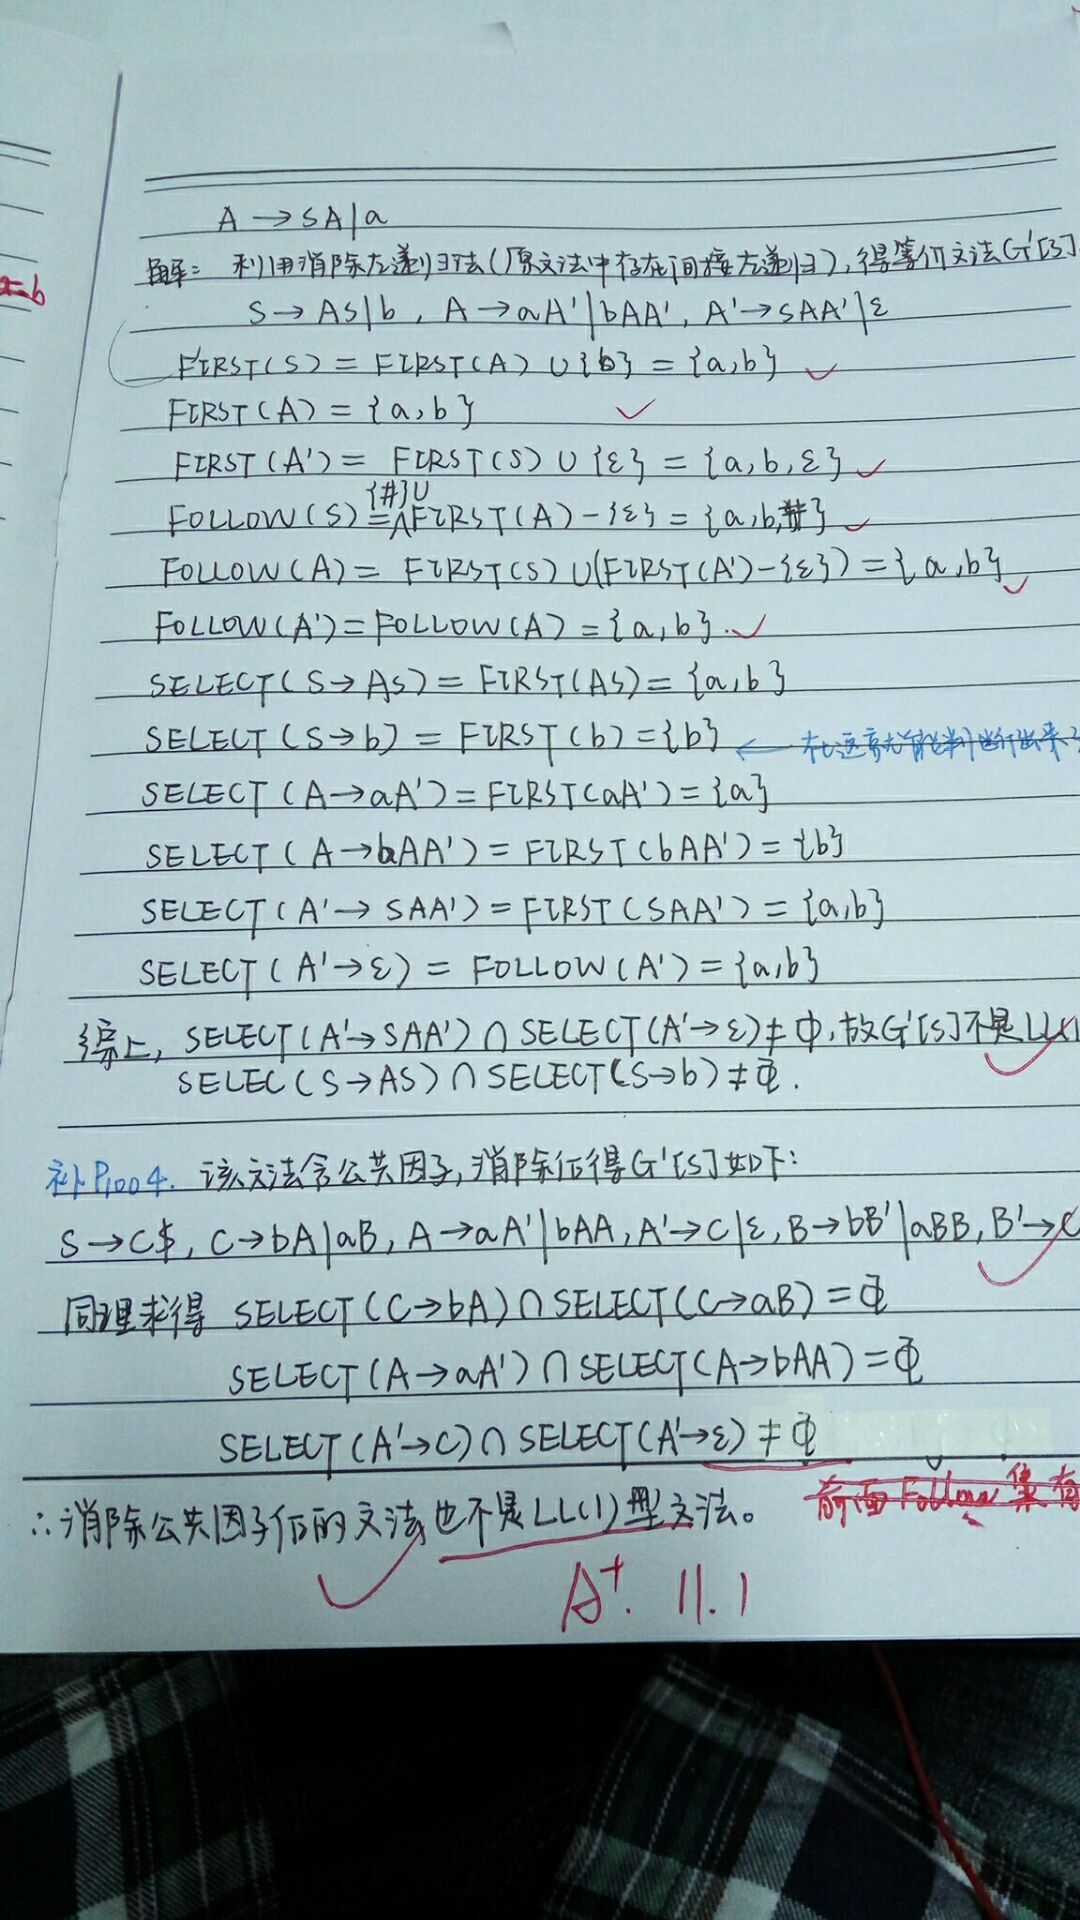 A → SA|a
=b
解: 利用消除左递归法(原文法中存在间接左递归),得等价文法G'[S]
S → AS|b , A → aA'|bAA', A' → SAA'|ε
FIRST(S) = FIRST(A) ∪ {b} = {a,b}
FIRST(A) = {a,b}
FIRST(A') = FIRST(S) ∪ {ε} = {a,b,ε}
FOLLOW(S) = {#}∪ FIRST(A) - {ε} = {a,b,#}
FOLLOW(A) = FIRST(S) ∪(FIRST(A') - {ε}) = {a,b}
FOLLOW(A') = FOLLOW(A) = {a,b}.
SELECT(S → AS) = FIRST(AS) = {a,b}
SELECT(S → b) = FIRST(b) = {b} ←
SELECT(A → aA') = FIRST(aA') = {a}
SELECT(A → bAA') = FIRST(bAA') = {b}
SELECT(A' → SAA') = FIRST(SAA') = {a,b}
SELECT(A' → ε) = FOLLOW(A') = {a,b}
综上, SELECT(A' → SAA') ∩ SELECT(A' → ε) ≠ Φ, 故G'[S]不是LL(1
SELEC(S → AS) ∩ SELECT(S → b) ≠ Φ.
补P100 4. 该文法含公共因子,消除后得G'[S]如下:
S → C$, C → bA|aB, A → aA'|bAA, A' → C|ε, B → bB'|aBB, B' → C
同理求得 SELECT(C → bA) ∩ SELECT(C → aB) = Φ
SELECT(A → aA') ∩ SELECT(A → bAA) = Φ
SELECT(A' → C) ∩ SELECT(A' → ε) ≠ Φ
前面Follow集有
∴消除公共因子后的文法也不是LL(1)型文法。
A+. 11.1